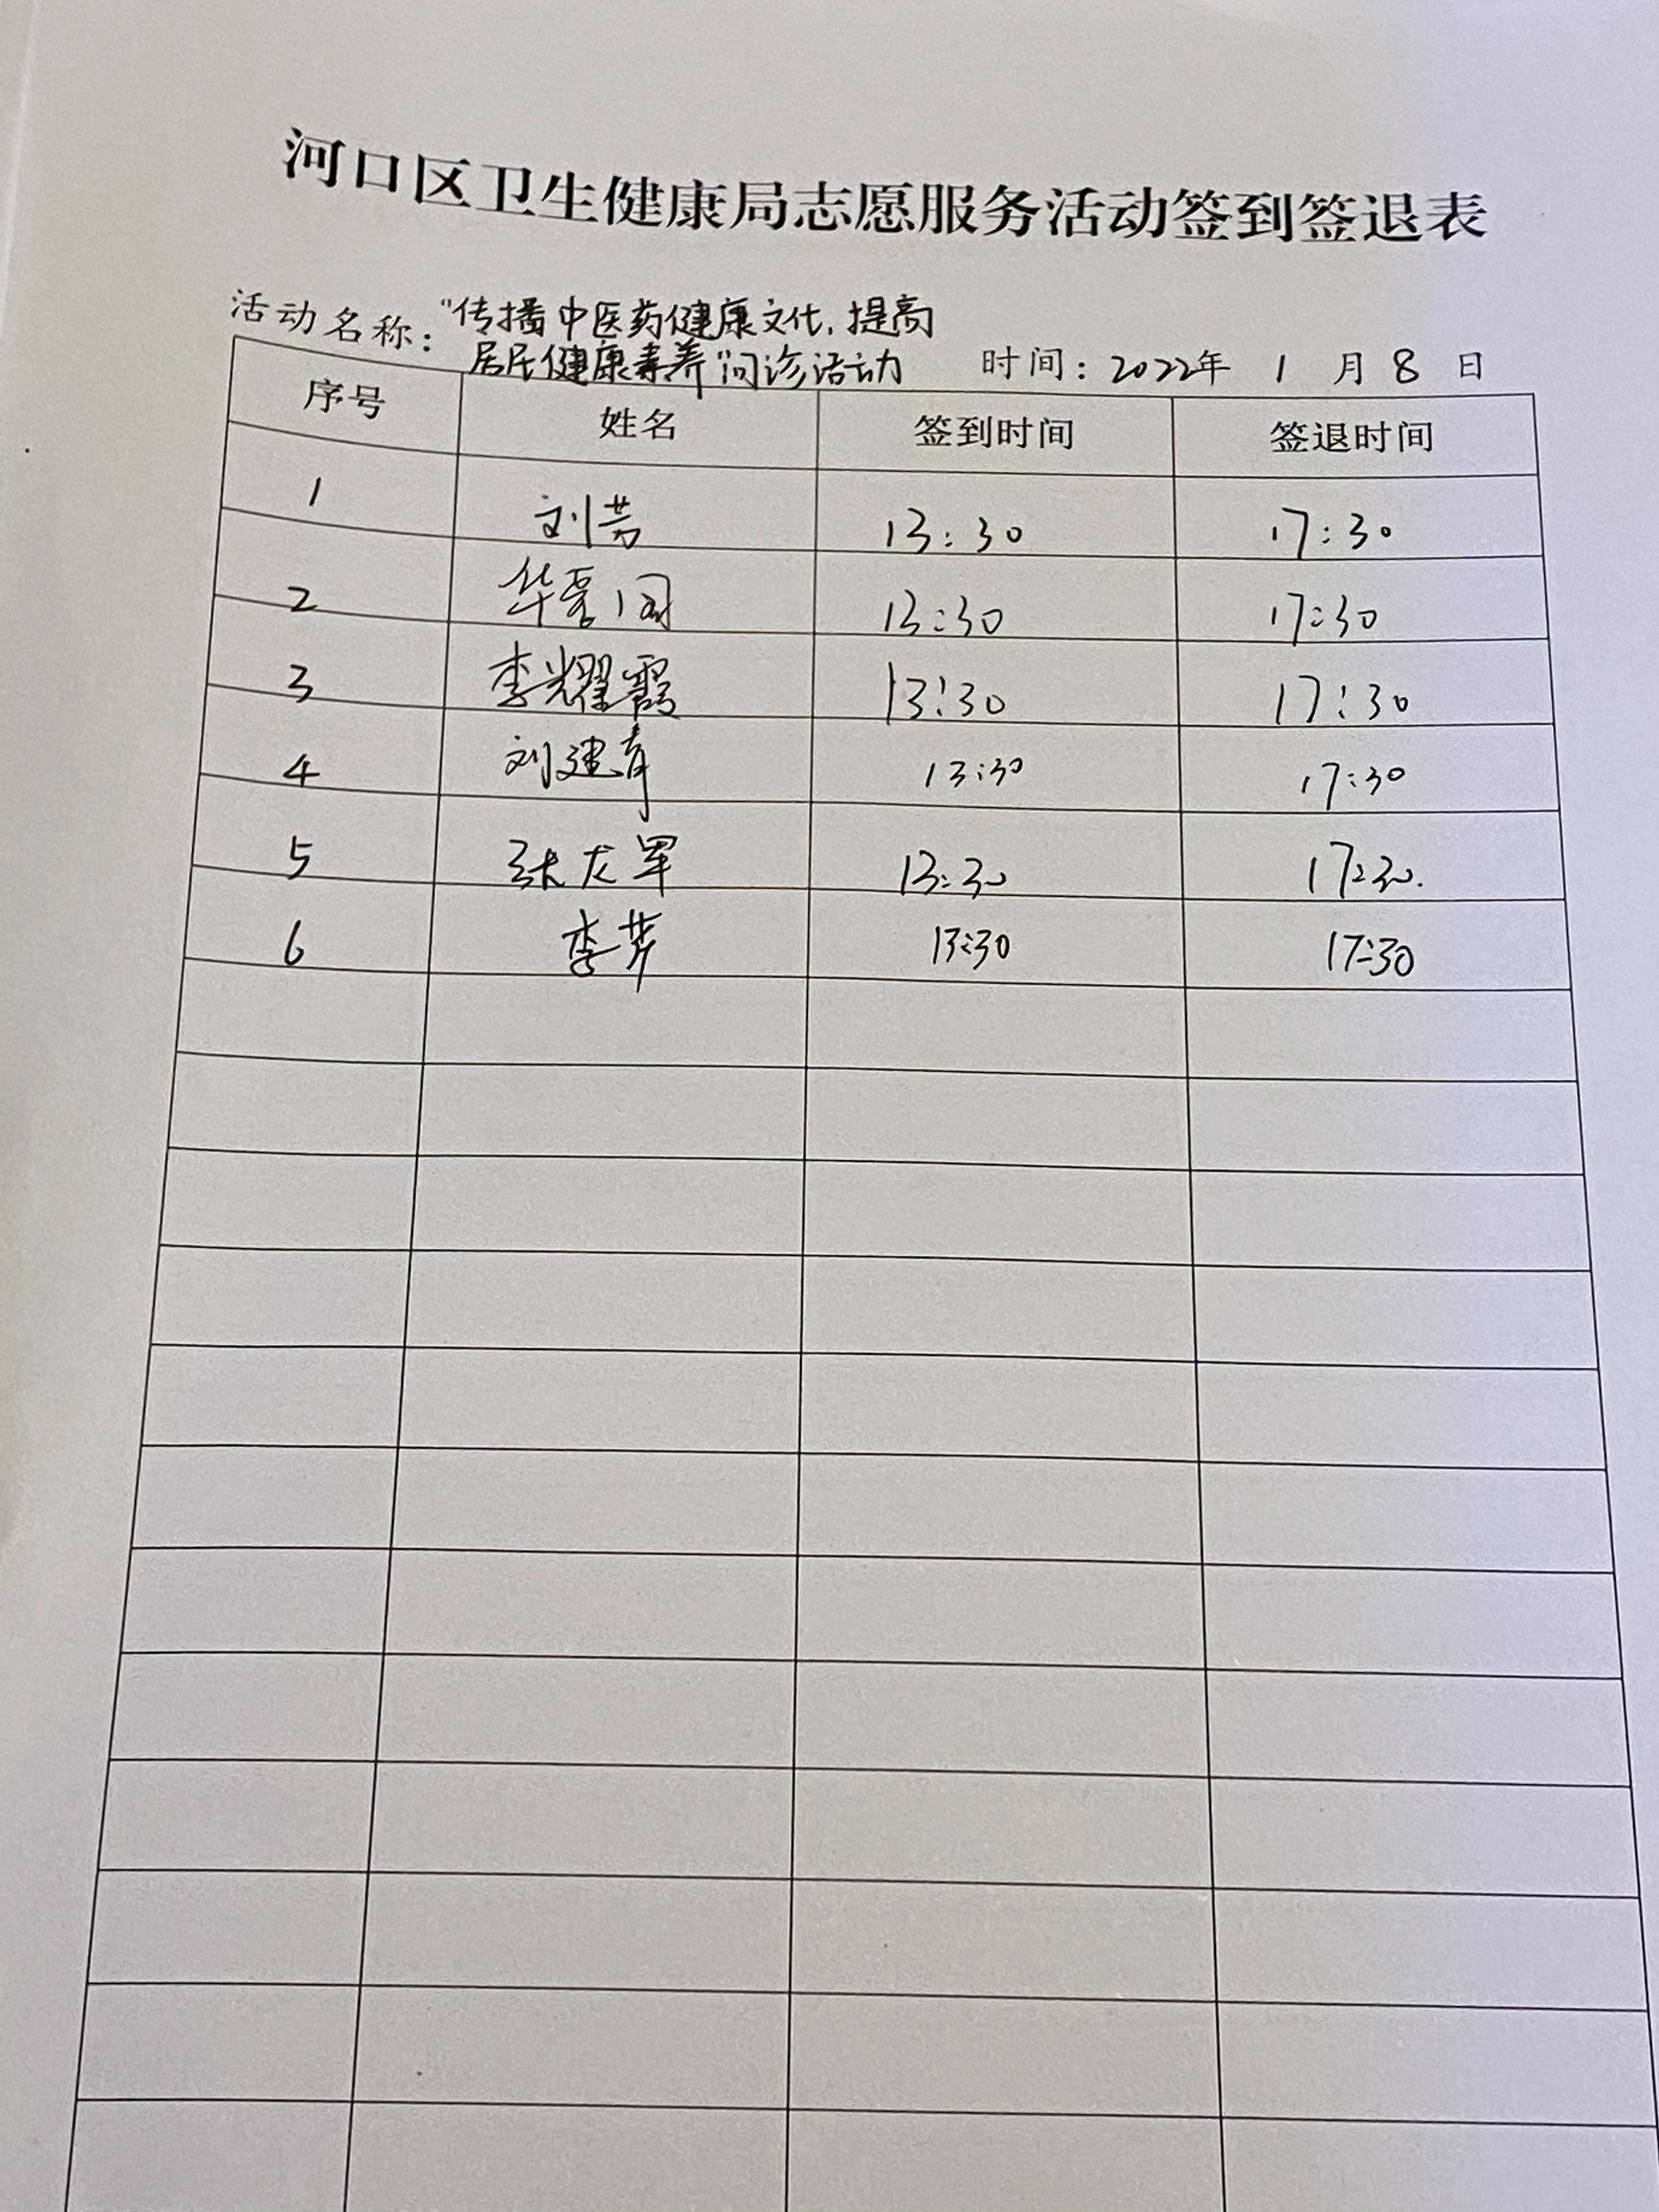 河口区卫生健康局志愿服务活动签到签退表
活动名称："传播中医药健康文化，提高
居民健康素养"问诊活动 时间：2022年 1 月 8 日
序号 姓名 签到时间 签退时间
1 刘芳 13:30 17:30
2 13:30 17:30
3 李耀霞 13:30 17:30
4 刘建青 13:30 17:30
5 张龙军 13:30 17:30.
6 李 13:30 17:30